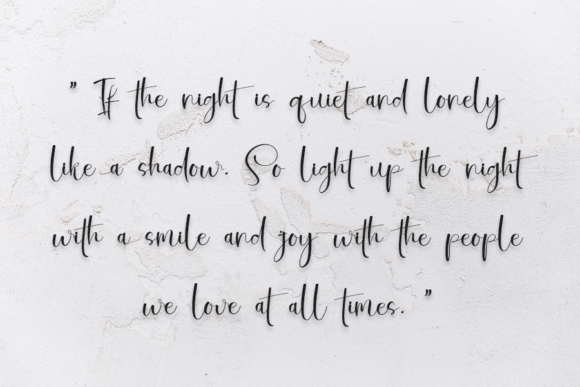 " If the night is quiet and lonely
like a shadow. So light up the night
with a smile and joy with the people
we love at all times. "